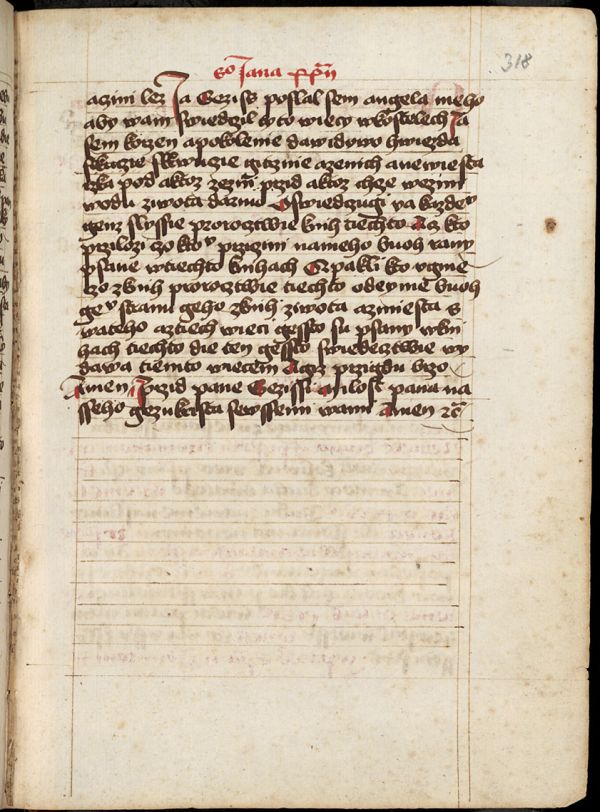 318
So Jana xxii
a czini lez Ja Gezis poslal sem angela meho
aby wam swiedczil toto wiecy w kostelech Ja
sem korzen a pokolenie dawidowo hwiezda
stkwucie gitrznie a zenich a newiesta
rzka pod a ktoz zezni przid a ktoz chcze wezmi
wodu ziwota darmo Oswiedczugi ya kazdeu
genz slyssie proroctwie knih tiechto Acz kto
przilozi czo kto prziczini na neho buoh rany
psane w tiechto knihach A pakli kto vgme
czo z knih proroctwie tiechto odeyme buoh
geo stranu geho z knih ziwota a z miesta s
wateho a z tiech wieci gessto su psany w kni
hach tiechto die ten gessto swiedecztwie wy
dawa tiemto wiecem A giz przigdu brzo
Amen Przid pane Gezissi milost pana na
sseho gezukrista se wssemi wami Amen rc